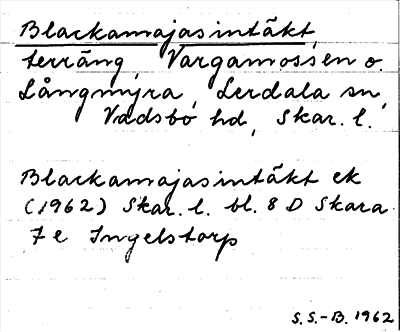 Blackamajasintäkt,
terräng, Vargamossen o.
Långmyra, Lerdala sn,
Vadsbo hd, Skar. l.
Blackamajasintäkt ek
(1962) Skar. l. bl. 8 D Skara
7 e Ingelstorp
S. S.-B. 1962